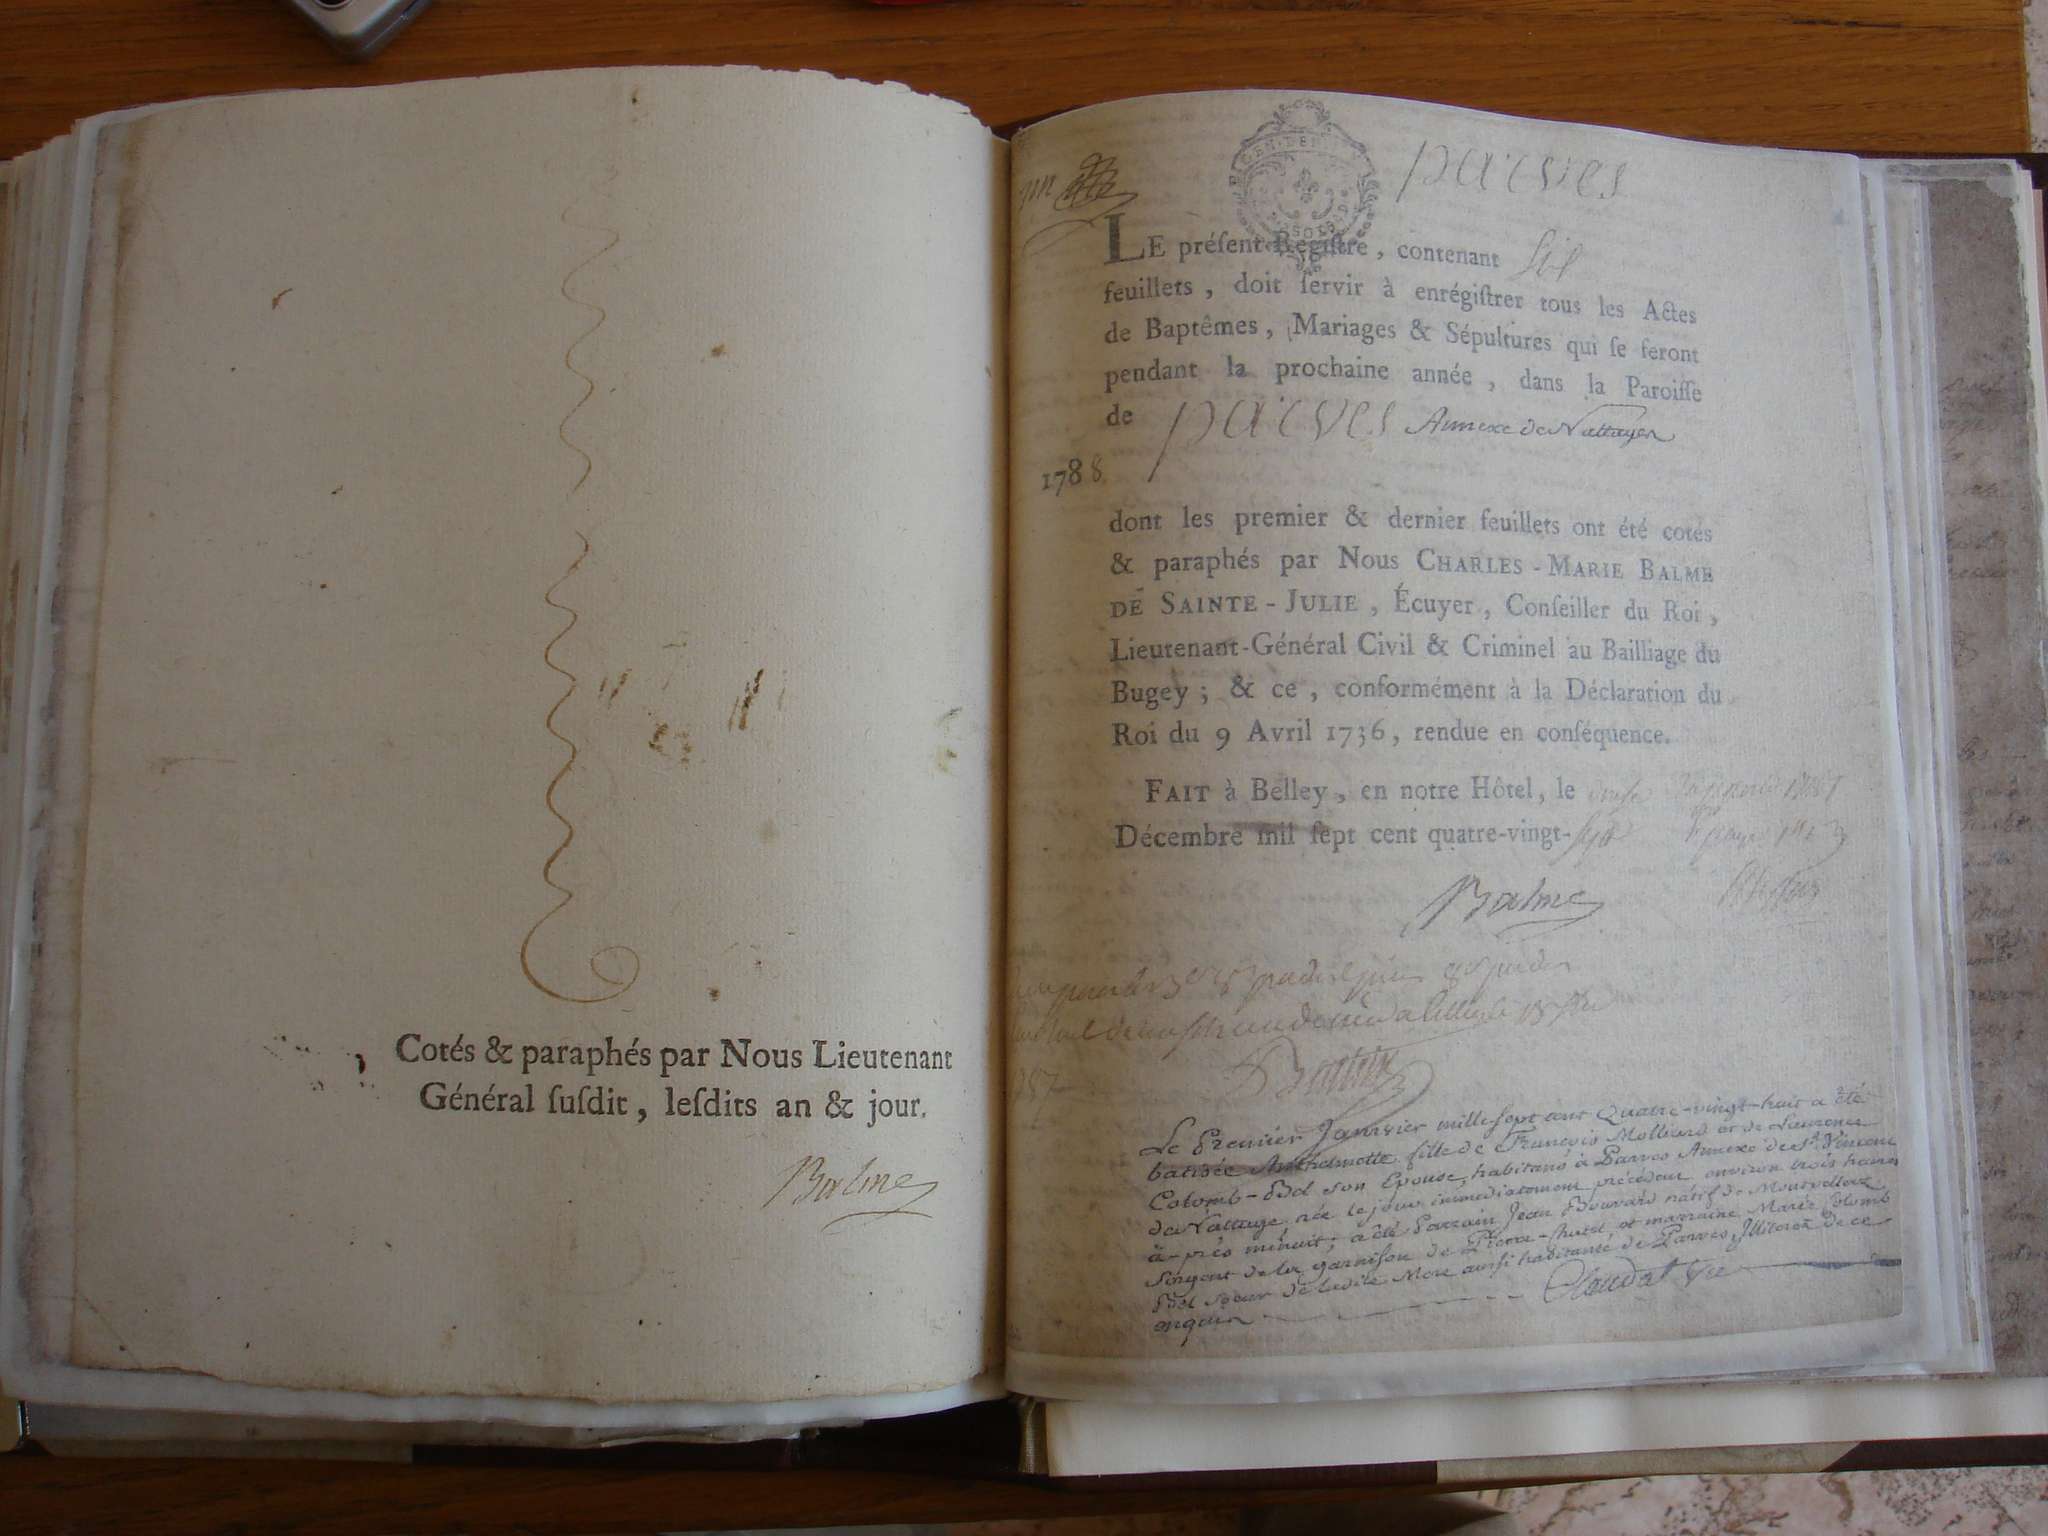 Cotés & paraphés par Nous Lieutenant
Général susdit, lesdits an & jour.
Balme
parves
LE présent Registre, contenant six
feuillets, doit servir à enrégistrer tous les Actes
de Baptêmes, Mariages & Sépultures qui se feront
pendant la prochaine année, dans la Paroisse
de parves Annexe de Nattages
1788
dont les premier & dernier feuillets ont été cotés
& paraphés par Nous CHARLES-MARIE BALME
DE SAINTE-JULIE, Écuyer, Conseiller du Roi,
Lieutenant-Général Civil & Criminel au Bailliage du
Bugey; & ce, conformément à la Déclaration du
Roi du 9 Avril 1736, rendue en conséquence.
FAIT à Belley, en notre Hôtel, le
Décembre mil sept cent quatre-vingt-sept
Balme
Le Premier Janvier mille sept cent Quatre-vingt-huit a été
batisée Anthelmette fille de François Molliard et de Laurence
Colomb-Bel son Epouse, habitans à Parves Annexe de St Vincent
de Nattage, née le jour immédiatement précédent environ trois heures
à-près minuit; a été Parrain Jean Bouvard natif de
Sergent de la garnison de Pierre-chatel, et marraine Marie Colomb
Bel soeur de ladite Mere aussi habitante de Parves, Illiterés de ce
enquis